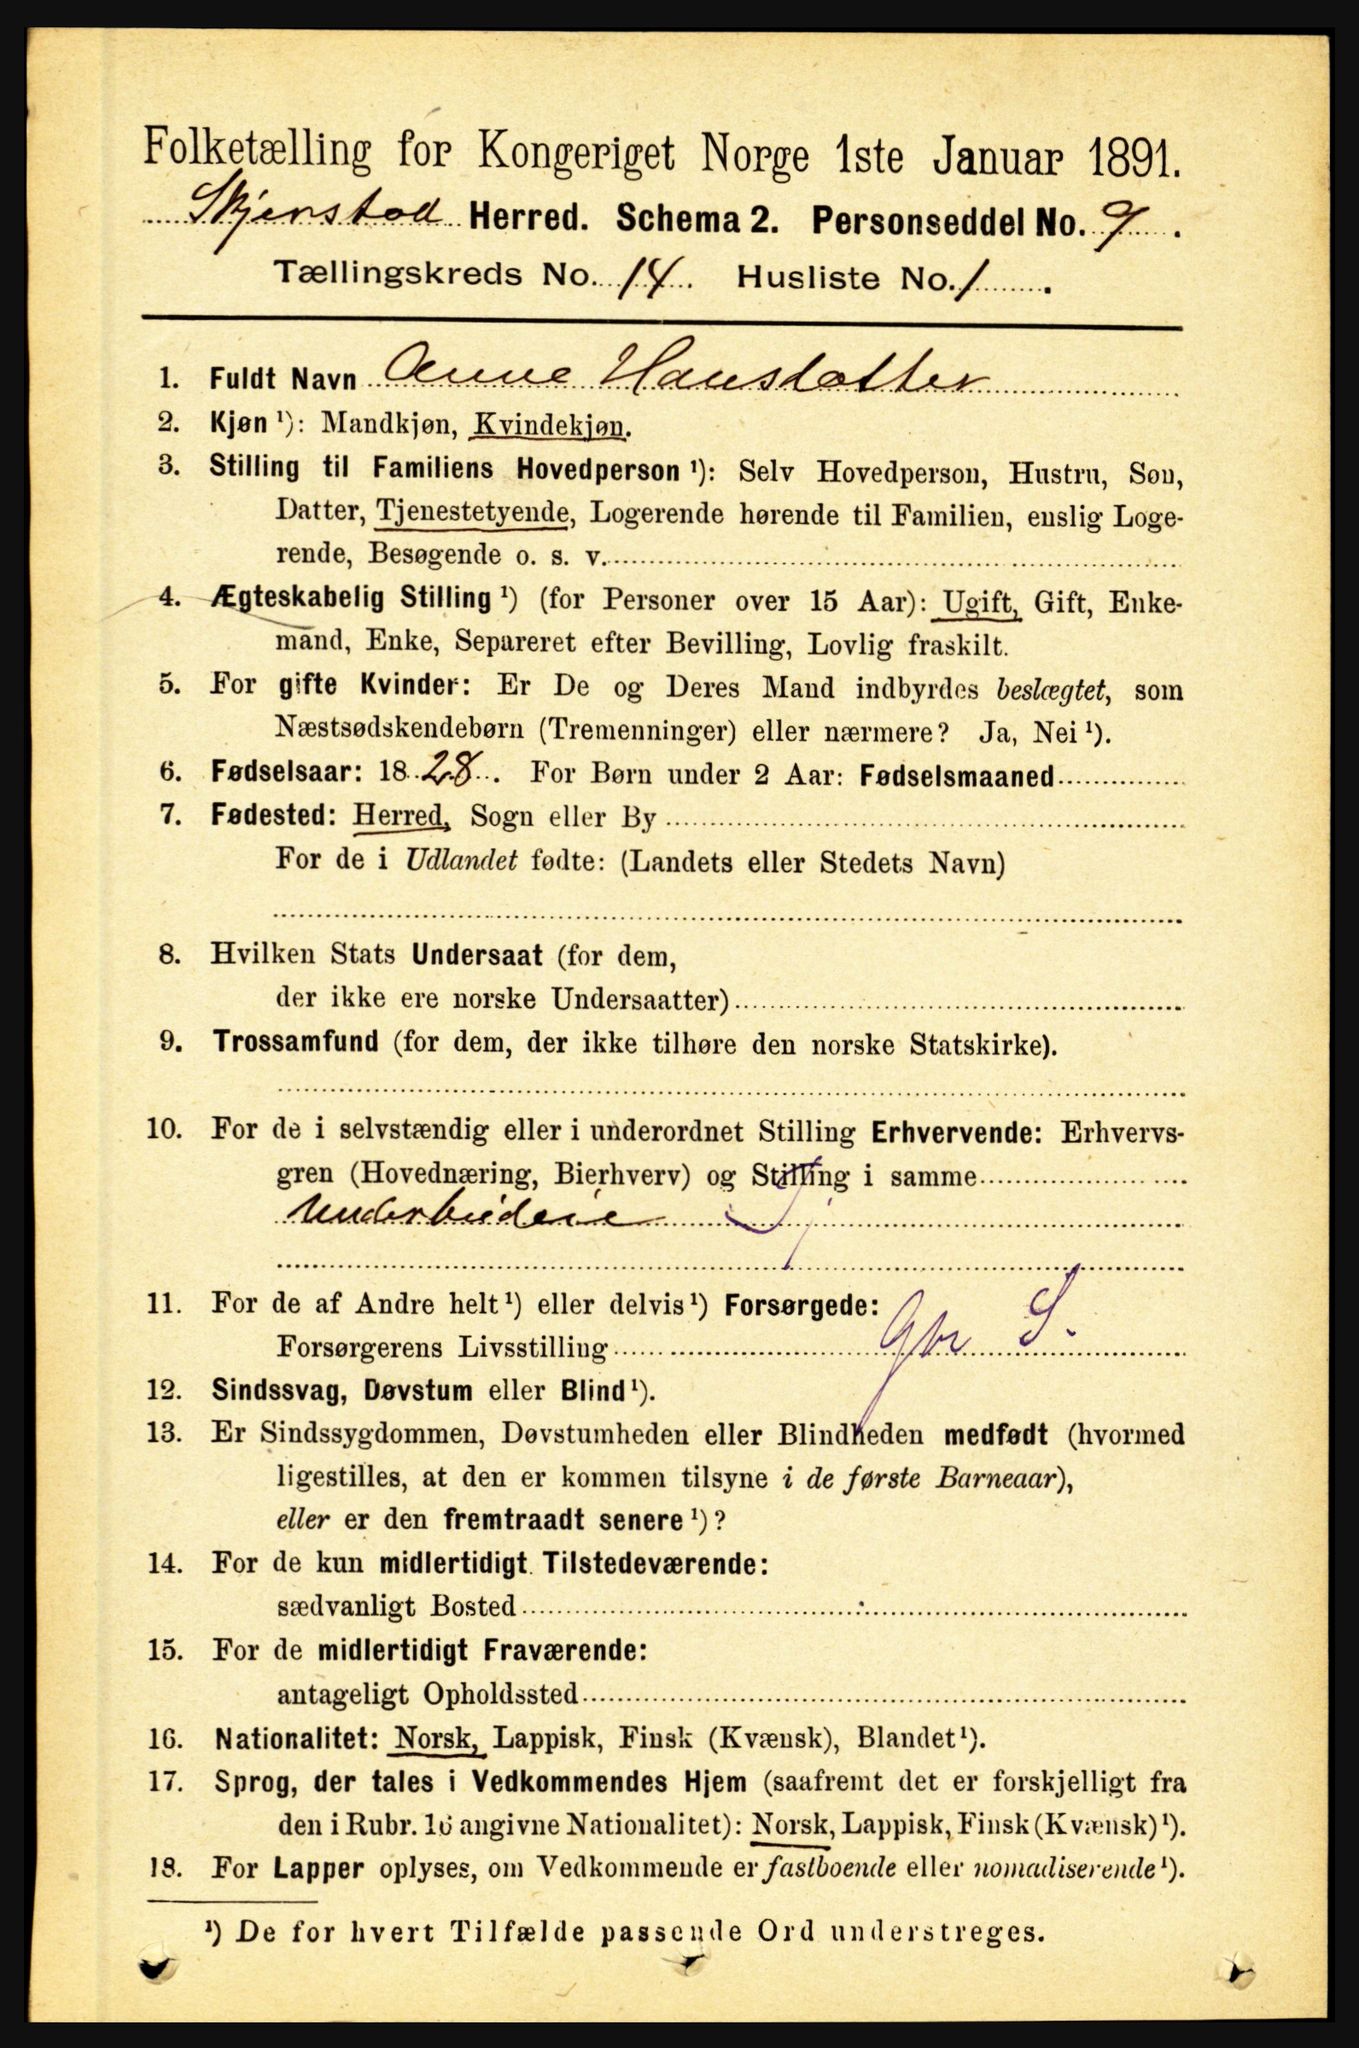 Folketælling for Kongeriget Norge 1ste Januar 1891.
Skjerstad Herred. Schema 2. Personseddel No. 9.
Tællingskreds No. 14. Husliste No. 1.
1. Fuldt Navn Anne Hansdatter
2. Kjøn ¹): Mandkjøn, Kvindekjøn.
3. Stilling til Familiens Hovedperson ¹): Selv Hovedperson, Hustru, Søn,
Datter, Tjenestetyende, Logerende hørende til Familien, enslig Loge-
rende, Besøgende o. s. v.
4. Ægteskabelig Stilling ¹) (for Personer over 15 Aar): Ugift, Gift, Enke-
mand, Enke, Separeret efter Bevilling, Lovlig fraskilt.
5. For gifte Kvinder: Er De og Deres Mand indbyrdes beslægtet, som
Næstsødskendebørn (Tremenninger) eller nærmere? Ja, Nei ¹).
6. Fødselsaar: 1828. For Børn under 2 Aar: Fødselsmaaned
7. Fødested: Herred, Sogn eller By
For de i Udlandet fødte: (Landets eller Stedets Navn)
8. Hvilken Stats Undersaat (for dem,
der ikke ere norske Undersaatter)
9. Trossamfund (for dem, der ikke tilhøre den norske Statskirke).
10. For de i selvstændig eller i underordnet Stilling Erhvervende: Erhvervs-
gren (Hovednæring, Bierhverv) og Stilling i samme
Underbudeie
11. For de af Andre helt ¹) eller delvis ¹) Forsørgede:
Forsørgerens Livsstilling Gbr S.
12. Sindssvag, Døvstum eller Blind ¹).
13. Er Sindssygdommen, Døvstumheden eller Blindheden medfødt (hvormed
ligestilles, at den er kommen tilsyne i de første Barneaar),
eller er den fremtraadt senere ¹)?
14. For de kun midlertidigt Tilstedeværende:
sædvanligt Bosted
15. For de midlertidigt Fraværende:
antageligt Opholdssted
16. Nationalitet: Norsk, Lappisk, Finsk (Kvænsk), Blandet ¹).
17. Sprog, der tales i Vedkommendes Hjem (saafremt det er forskjelligt fra
den i Rubr. 16 angivne Nationalitet): Norsk, Lappisk, Finsk (Kvænsk) ¹).
18. For Lapper oplyses, om Vedkommende er fastboende eller nomadiserende ¹).
¹) De for hvert Tilfælde passende Ord understreges.